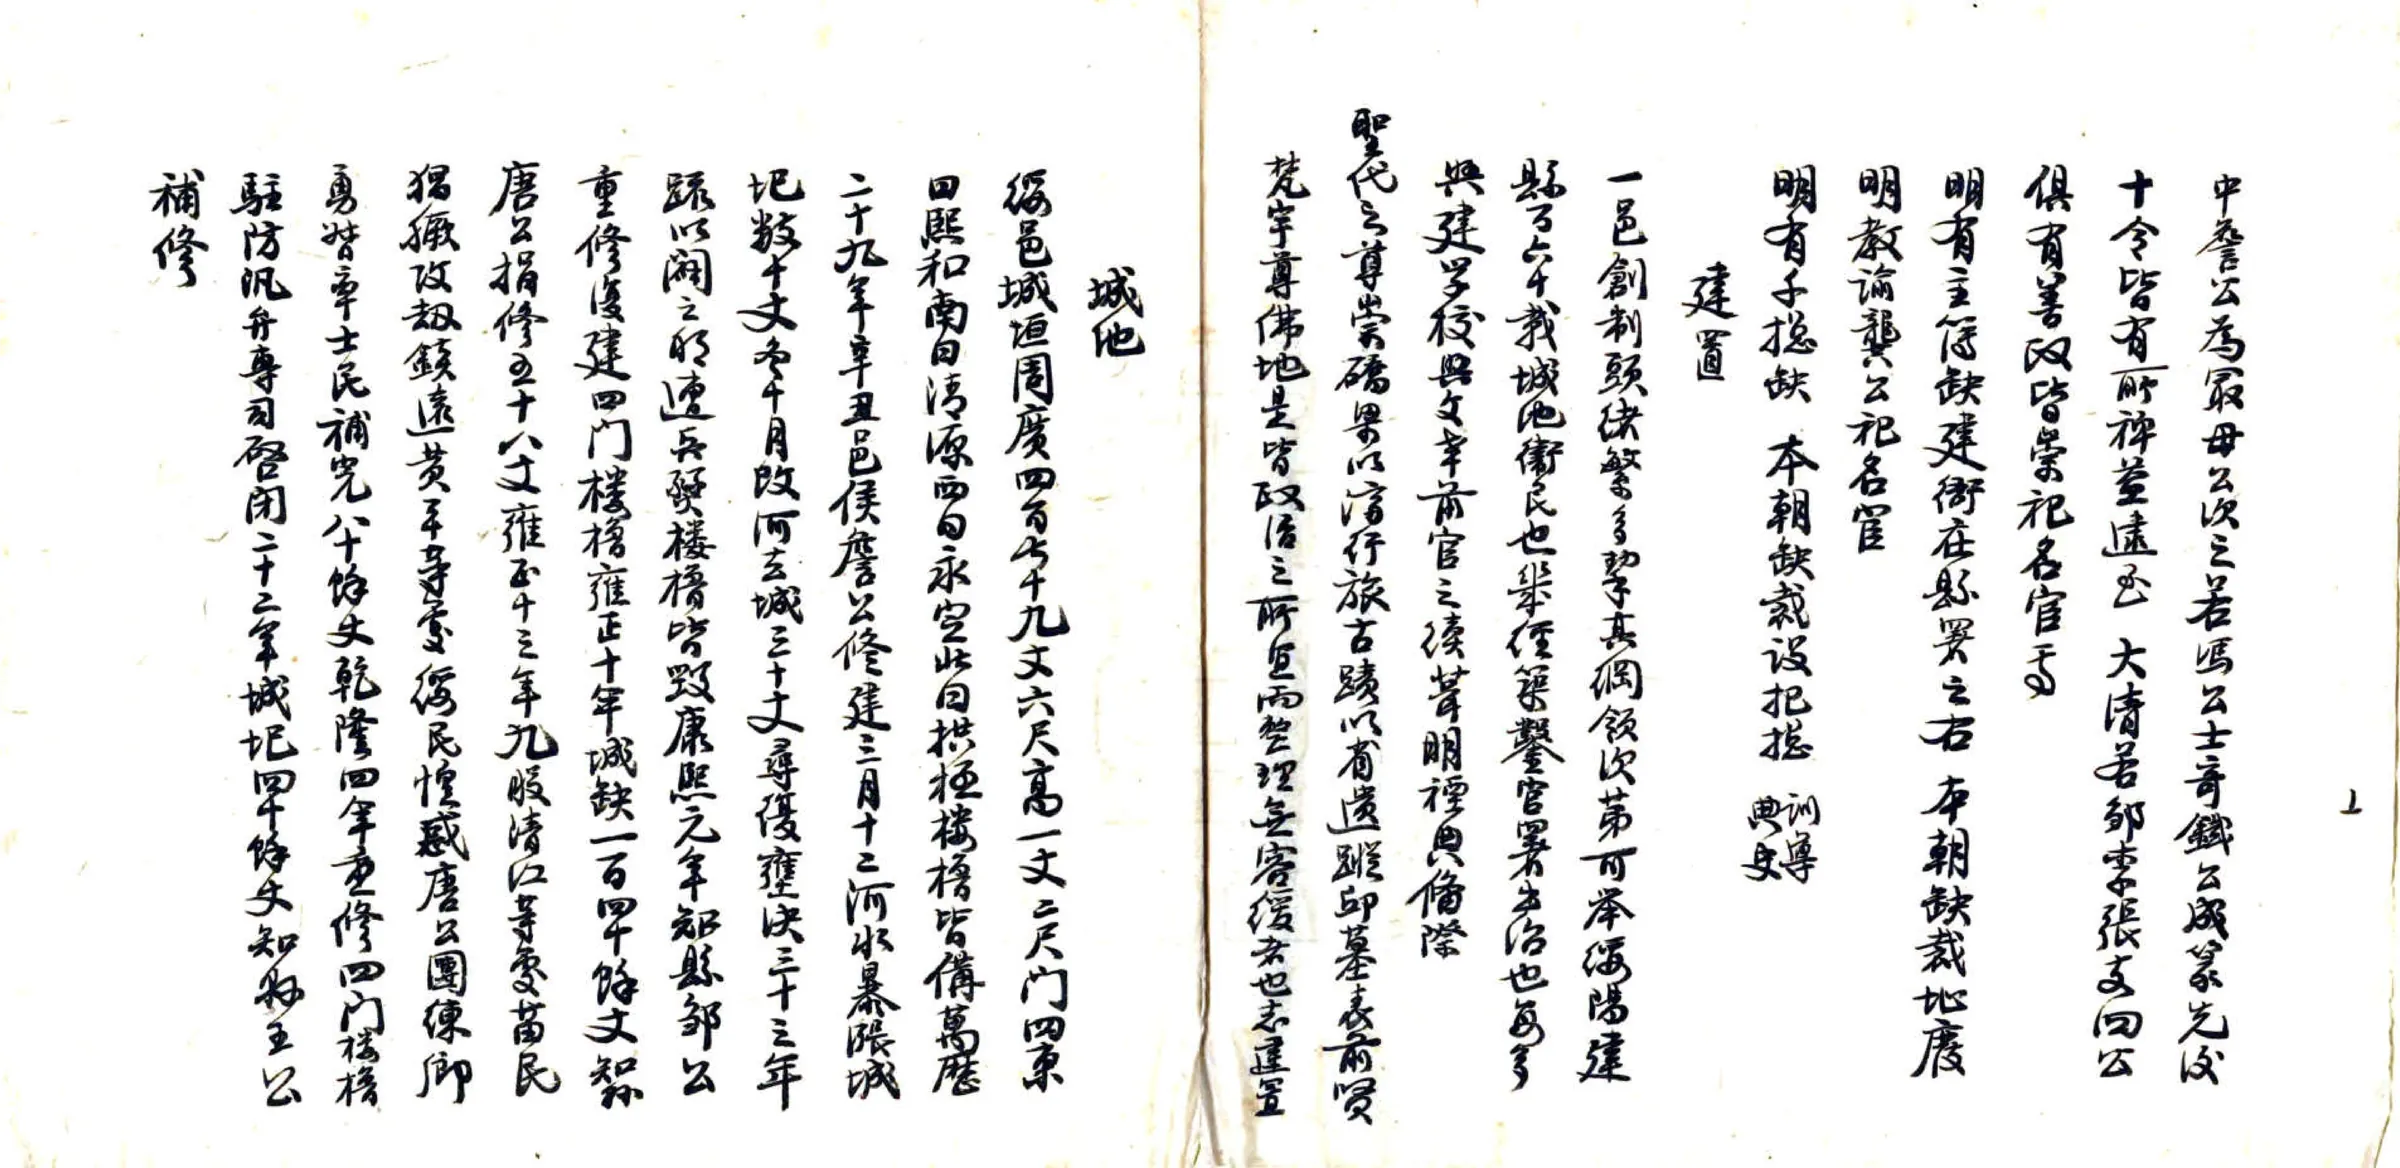 中詹公為最毋公次之若馮公士奇鐵公成篆先後
十令皆有所裨益逮至 大清若鄒李張支四公
俱有善政皆崇祀名宦焉
明有主簿缺建衙在縣署之右 本朝缺裁地廢
明教諭龔公祀名宦
明有千総缺 本朝缺裁设把捴 訓導 典史
建置
一邑創制頭绪繁多挈其綱领次苐可举绥陽建
縣百六十載城池衛民也
築鑿官署出治也每多
興建学校興文
前官之續葺明禋典脩際
聖代之尊崇橋梁以濟行旅古蹟以省遺蹤邱墓表前賢
梵宇尊佛地是皆政治之所宜而整理無容缓者也志建置
城池
绥邑城垣周廣四百七十九丈六尺高一丈二尺门四東
曰熙和南曰清源西曰永定北曰拱極楼櫓皆備萬歷
二十九年辛丑邑侯詹公修建三月十二河水暴漲城
圮数十丈冬十月改河去城三十丈尋復壅决三十三年
疏以濶之明
連兵燹楼櫓皆毁康熙元年知縣鄒公
重修復建四门楼櫓雍正十年城缺一百四十餘丈知縣
唐公捐修五十八丈雍正十三年九股清江等處苗民
猖獗攻刼鎮遠黄平等處绥民惶惑唐公團练鄉
勇督率士民補完八十餘丈乾隆四年重修四门楼櫓
駐防汛弁專司啓闭二十二年城圮四十餘丈知縣王公
補修